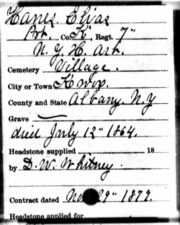 Hanes Elias
Pvt. Co. K, Regt. 7"
N. Y. H. Art.
Cemetery Village.
City or Town Knox
County and State Albany. N. Y
Grave
died July 12" 1864.
Headstone supplied 18
by D. W. Whitney.
Contract dated Nov 29" 1879.
Headstone applied for